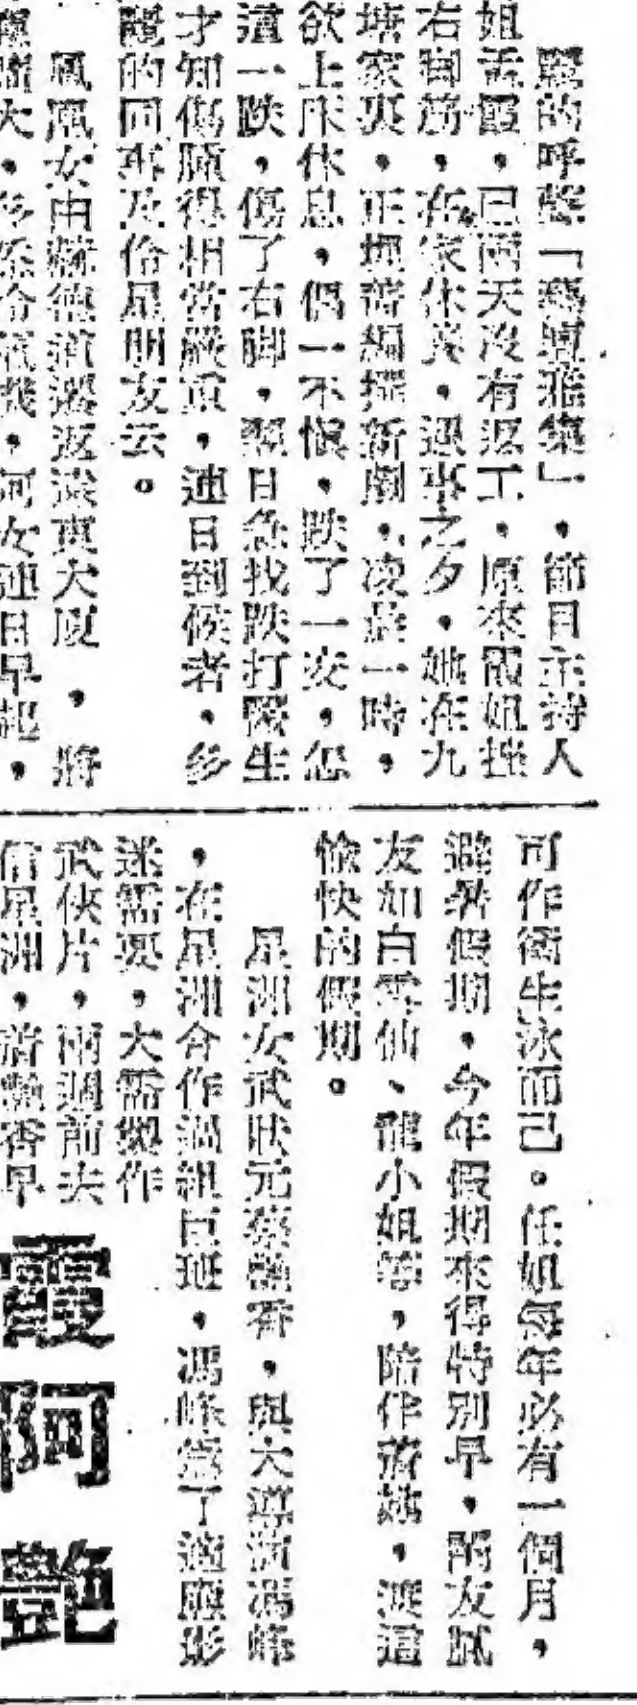 麗的呼聲「燕壇雅集」,節目主持人
姐孟霞,已兩天沒有返工,原來霞姐挫
右脚筋,在家休養,遇事之夕,她在九
塘家裏,正埋首編撰新劇,凌晨一時,
欲上床休息,偶一不愼,跌了一交,怎
這一跌,傷了右脚,翌日急找跌打醫生
才知傷勢得相當嚴重,連日到候者,多
麗的同事及伶星朋友云。
鳳凰女由蘇德道遷返淡東大廈,將
大,多添冷氣機,阿女連日早起,
可作衞生泳而已。任姐每年必有一個月,
避暑假期,今年假期來得特別早,閨友膩
友如白雪仙、龍小姐等,陪伴着她,渡這
愉快的假期。
星洲女武狀元蔡艷香,與大導演馮峰
,在星洲合作過組巨班,馮峰爲了適應影
迷需要,大需製作
武俠片,兩週前去
信星洲,請艷香早
霞阿艷